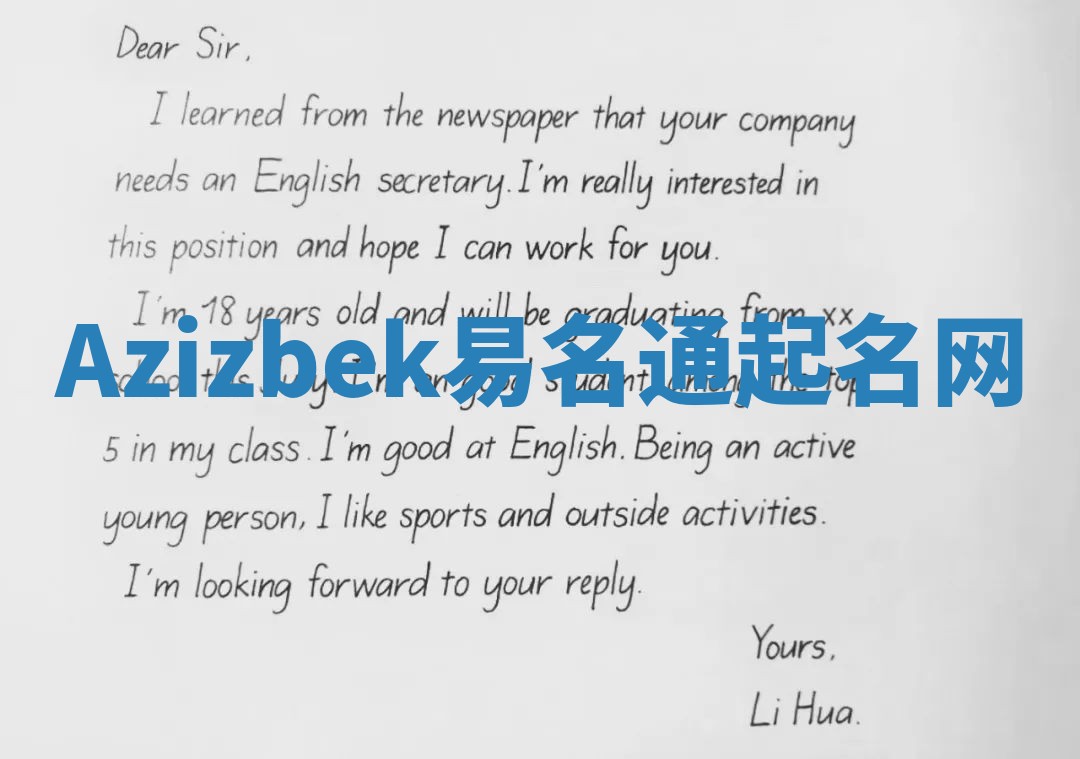 Dear Sir,
I learned from the newspaper that your company
needs an English secretary. I'm really interested in
this position and hope I can work for you.
I'm 18 years old and will be graduating from xx
Azizbek易名通起名网
this student among the top
5 in my class. I'm good at English. Being an active
young person, I like sports and outside activities.
I'm looking forward to your reply.
Yours,
Li Hua.